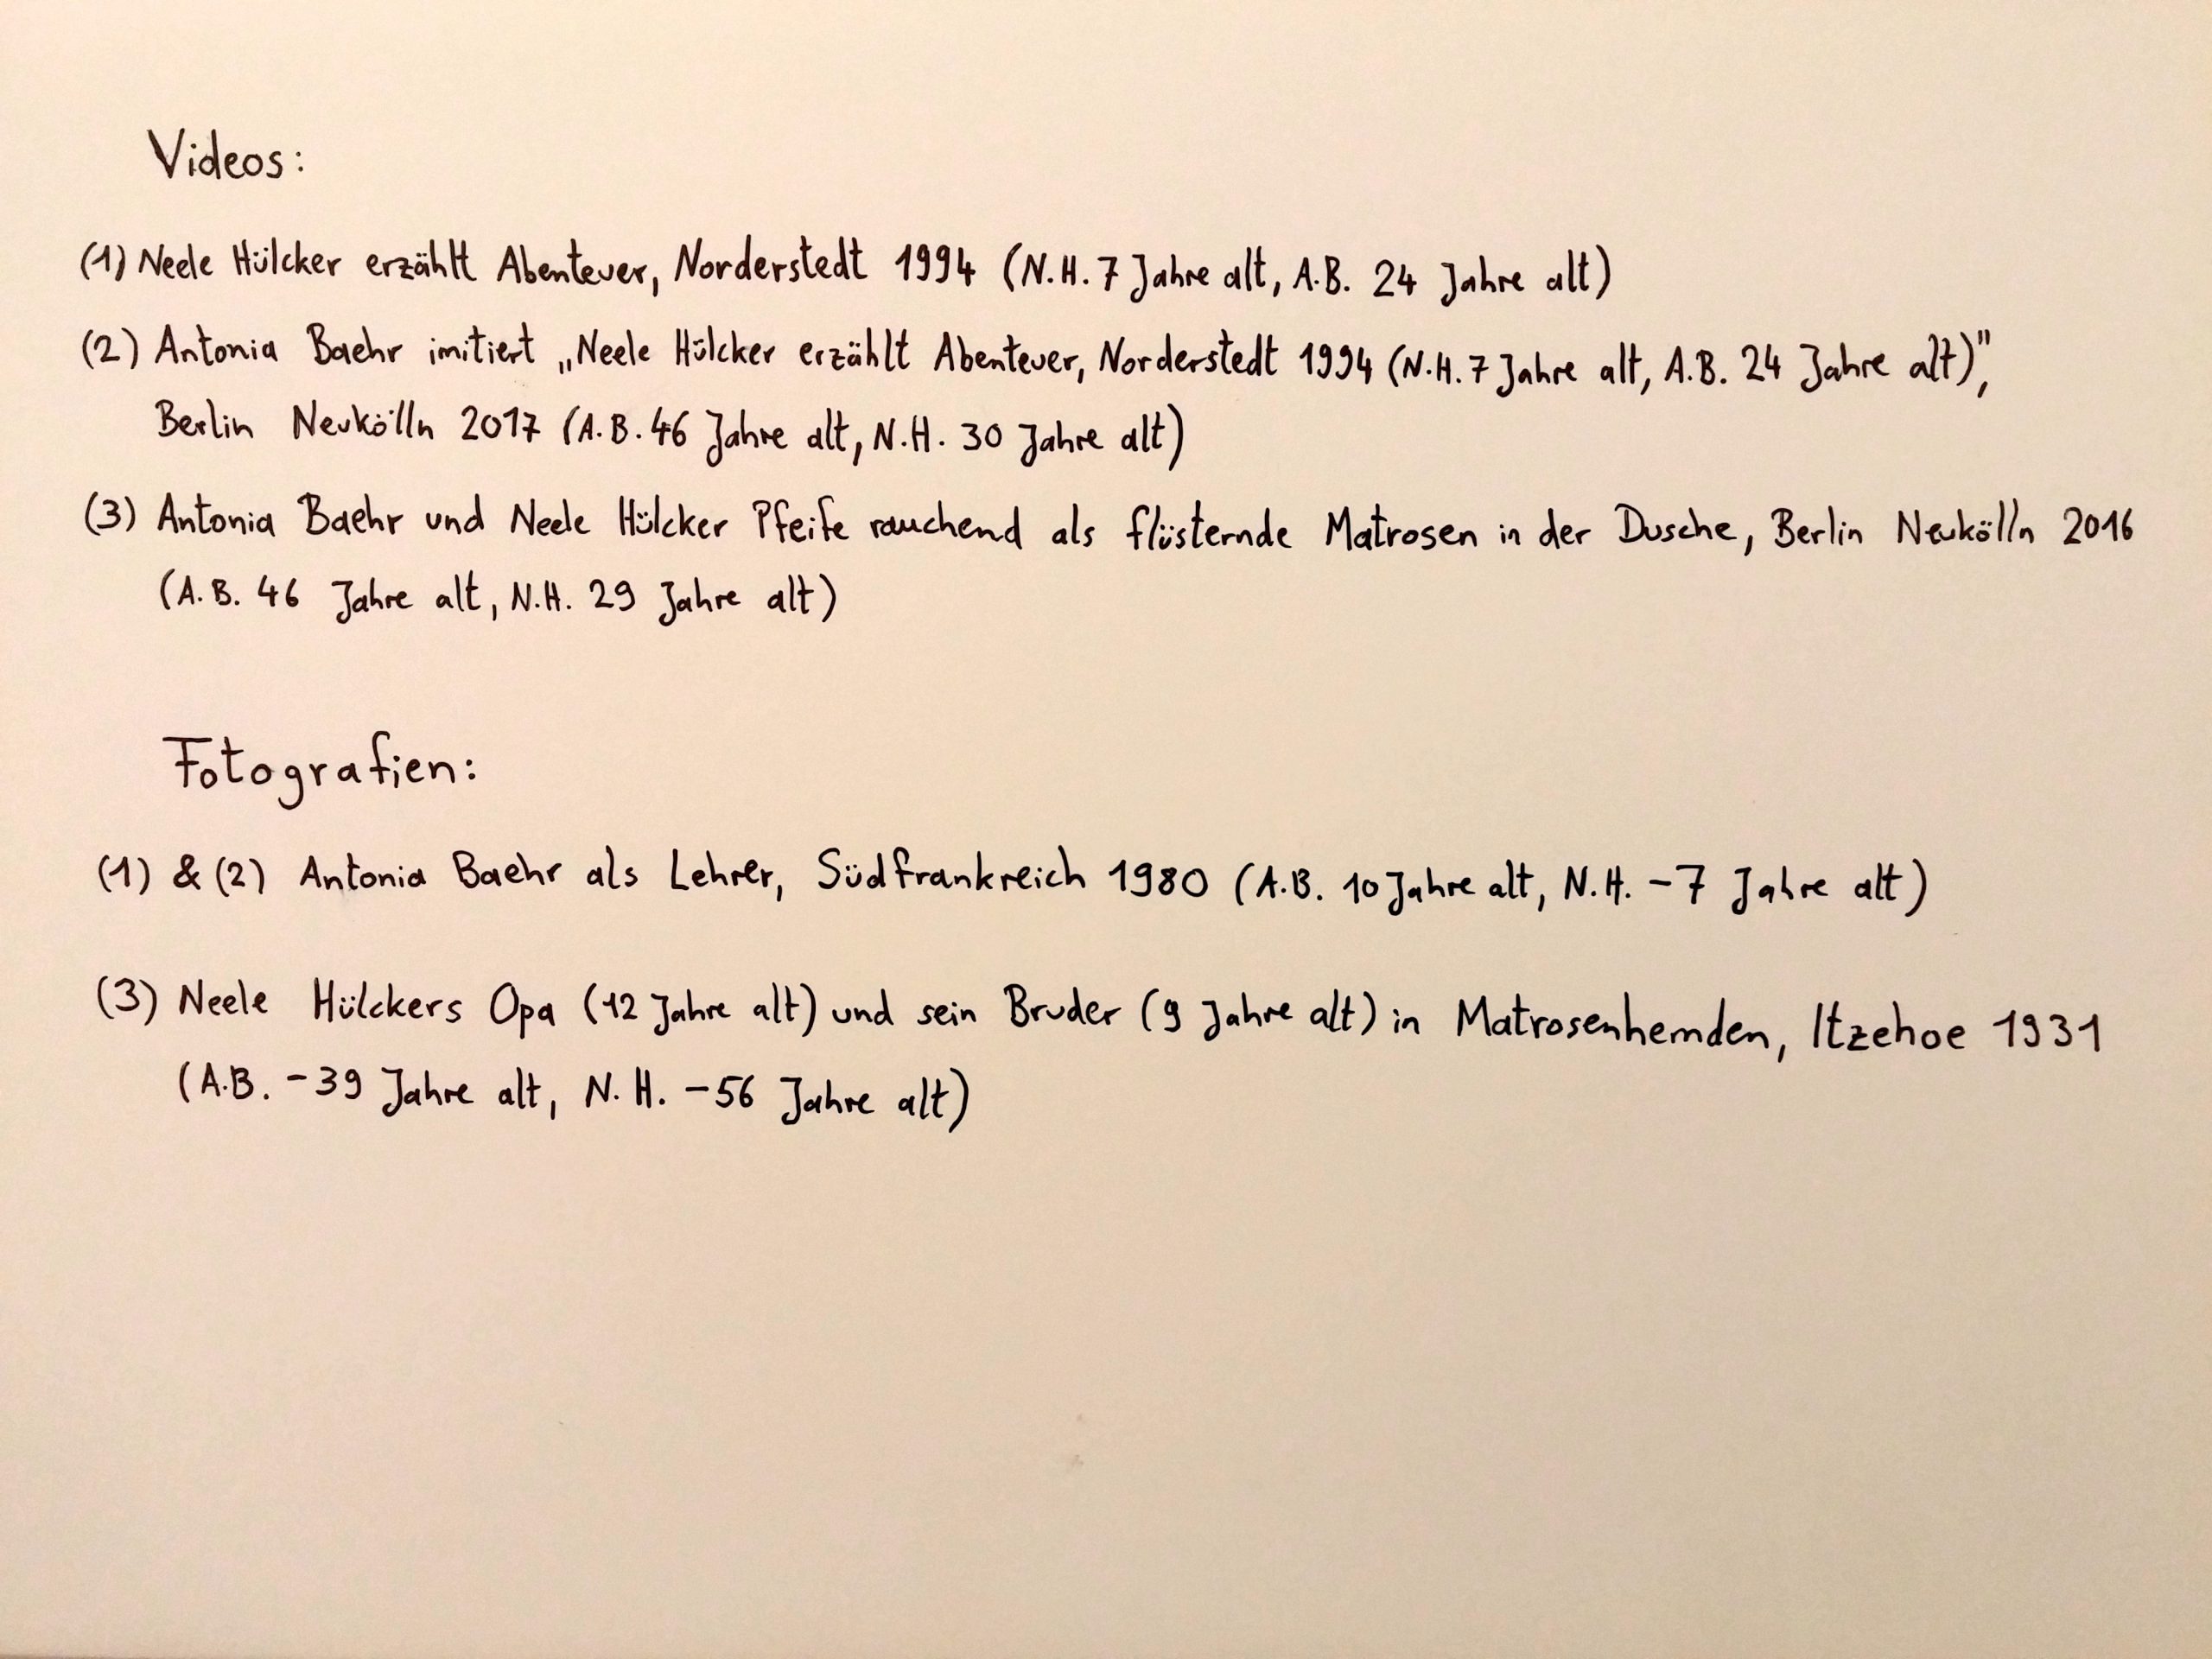 Videos:
(1) Neele Hülcker erzählt Abenteuer, Norderstedt 1994 (N.H. 7 Jahre alt, A.B. 24 Jahre alt)
(2) Antonia Baehr imitiert „Neele Hülcker erzählt Abenteuer, Norderstedt 1994 (N.H. 7 Jahre alt, A.B. 24 Jahre alt)",
Berlin Neukölln 2017 (A.B. 46 Jahre alt, N.H. 30 Jahre alt)
(3) Antonia Baehr und Neele Hülcker Pfeife rauchend als flüsternde Matrosen in der Dusche, Berlin Neukölln 2016
(A.B. 46 Jahre alt, N.H. 29 Jahre alt)
Fotografien:
(1) & (2) Antonia Baehr als Lehrer, Südfrankreich 1980 (A.B. 10 Jahre alt, N.H. -7 Jahre alt)
(3) Neele Hülckers Opa (12 Jahre alt) und sein Bruder (9 Jahre alt) in Matrosenhemden, Itzehoe 1931
(A.B. -39 Jahre alt, N.H. -56 Jahre alt)